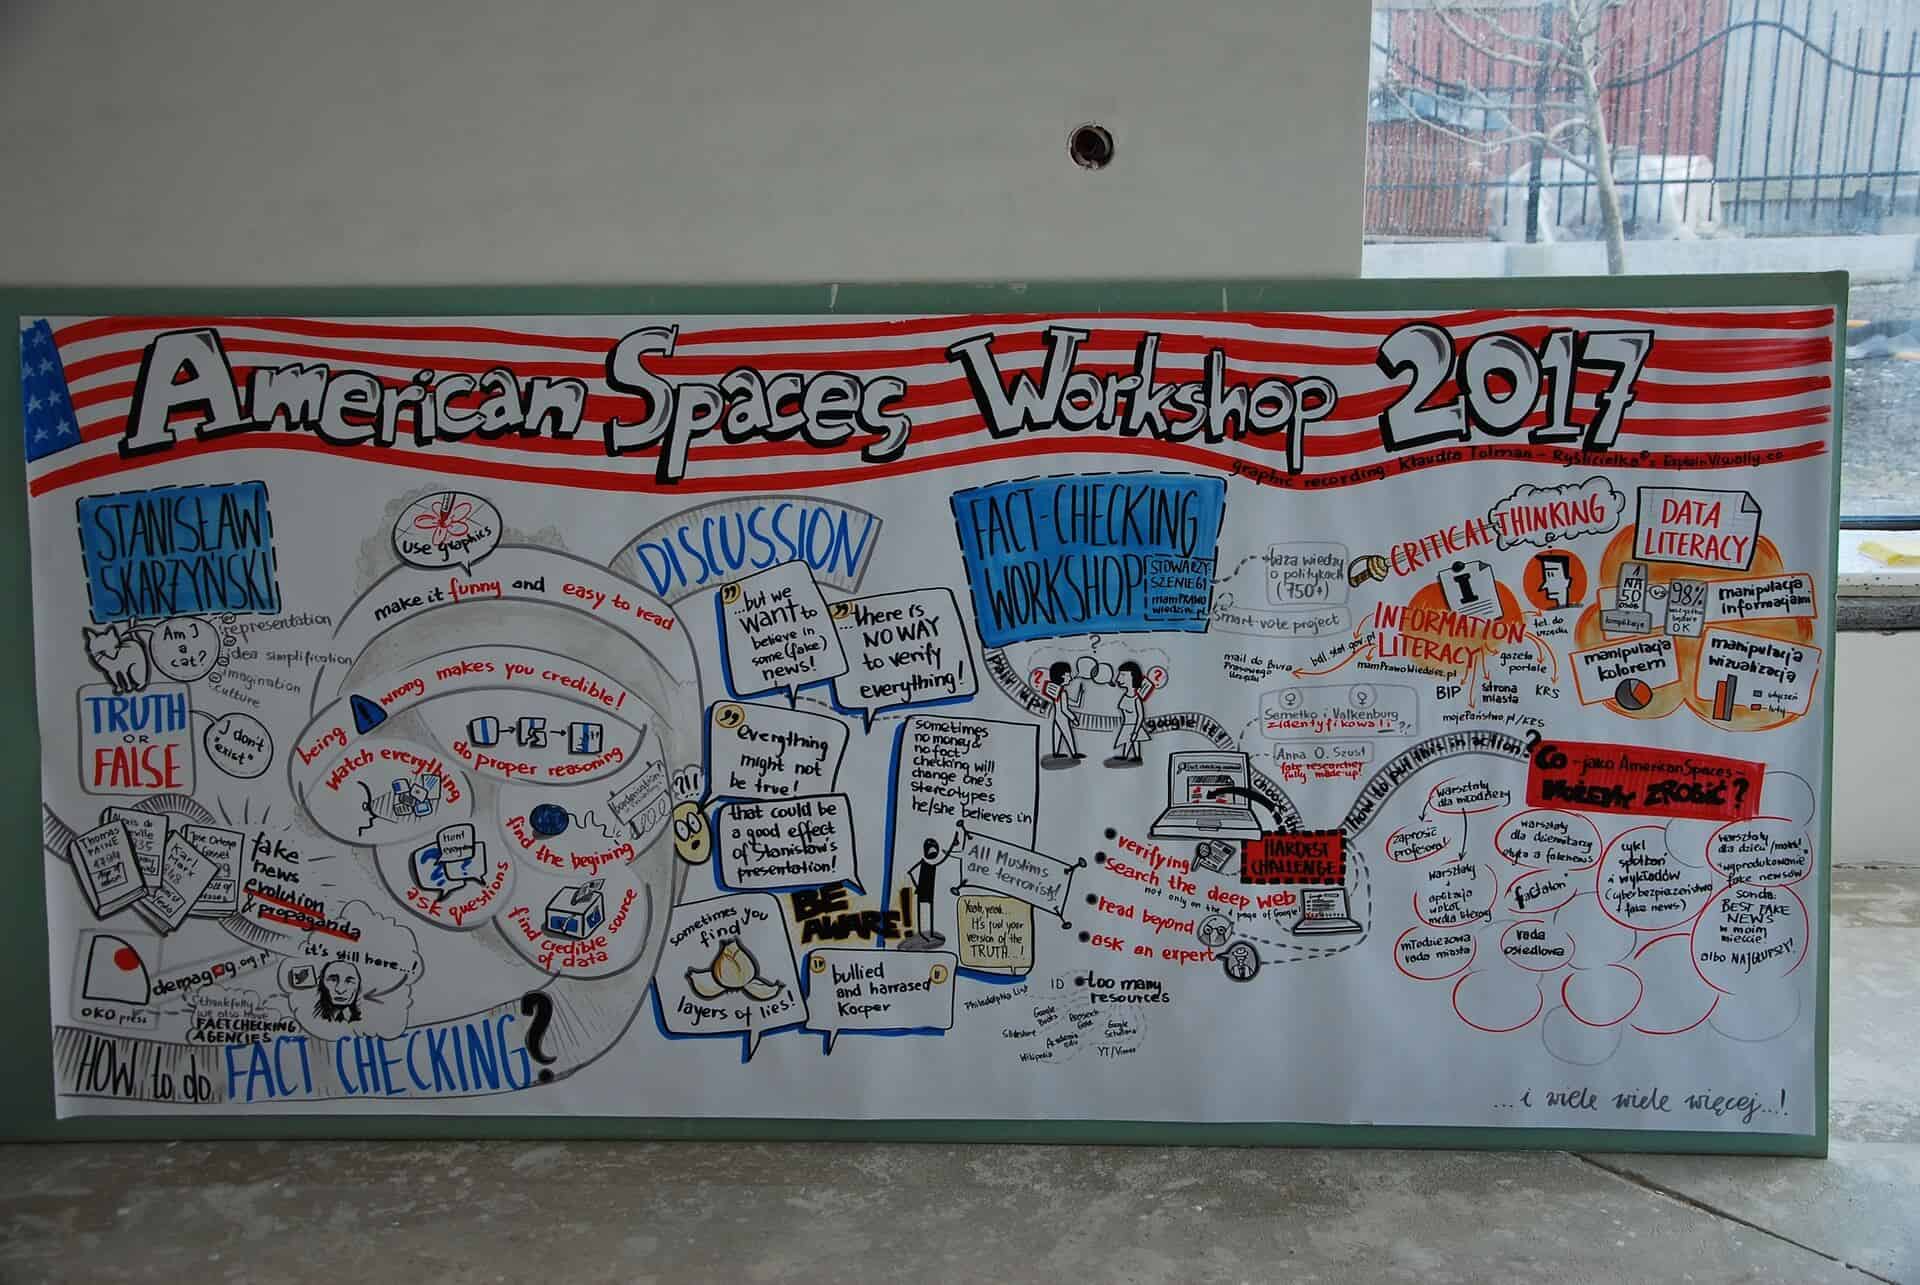 American Spaces Workshop 2017
graphic recording: Klaudia Tolman - Ryślicielka & ExplainVisually.co
STANISŁAW
SKARŻYŃSKI
Am I
a cat?
representation
idea simplification
imagination
culture
TRUTH
OR
FALSE
I don't
"exist"
Thomas
PAINE
1794
Age of
reason
Karl
Marx
José Ortega
Gasset
fake
news
evolution
& propaganda
it's still here...!
OKO press
demagog.org.pl
thankfully
we also have
FACT CHECKING
AGENCIES
HOW to do FACT CHECKING?
use graphics
make it funny and easy to read
being wrong makes you credible!
watch everything
do proper reasoning
ask questions
find the begining
find credible source
of data
DISCUSSION
...but we
want to
believe in
some (fake)
news!
...there is
NO WAY
to verify
everything!
everything
might not
be true!
that could be
a good effect
of Stanisław's
presentation!
sometimes
no money &
no fact
checking will
change one's
stereotypes
he/she believes in
?!!
BE
AWARE!
All Muslims
are terrorists!
Yeah, yeah...
It's just your
version of the
TRUTH...!
sometimes you
find
layers of lies!
bullied
and harrased
Kacper
FACT-CHECKING
WORKSHOP
STOWARZY-
SZENIE 61
mamPRAWO
wiedziec.pl
baza wiedzy
o politykach
(750+)
smart-vote project
pair up!
google it!
choose the
HARDEST
CHALLENGE
verifying
search the deep web
not only on the 1 page of Google!
read beyond
ask an expert
too many
resources
ID
Philadelphia List
Google
Books
Research
Gate
Google
Scholar
Slideshare
Academia
edu
Wikipedia
YT/Vimeo
CRITICAL THINKING
INFORMATION
LITERACY
mail do Biura
Prawnego
Urzędu
mamPrawoWiedziec.pl
BIP
strona
miasta
gazeta
portale
KRS
tel. do
urzędu
mojePaństwo.pl/KRS
Semetko i Valkenburg
zidentyfikowali?!
Anna O. Szust
fake researcher
fully made-up!
DATA
LITERACY
1
NA
50
osób
komplikacje
VS
98%
wszystko
będzie
OK
manipulacja
informacjami
manipulacja
kolorem
manipulacja
wizualizacją
styczeń
luty
how do put this in action?
Co - jako American Spaces -
MOŻEMY ZROBIĆ?
warsztaty
dla młodzieży
zaprosić
profesora!
warsztaty
dla dziennikarzy
etyka a fakenews
cykl
spotkań
i wykładów
(cyberbezpieczeństwo
+ fake news)
warsztaty
dla dzieci/matek!
wyprodukowanie
fake newsów
warsztaty
media literacy
factaton
sonda:
BEST FAKE
NEWS
w moim
mieście!
albo NAJGŁUPSZY!
młodzieżowa
rada miasta
rada
osiedlowa
...i wiele wiele więcej...!